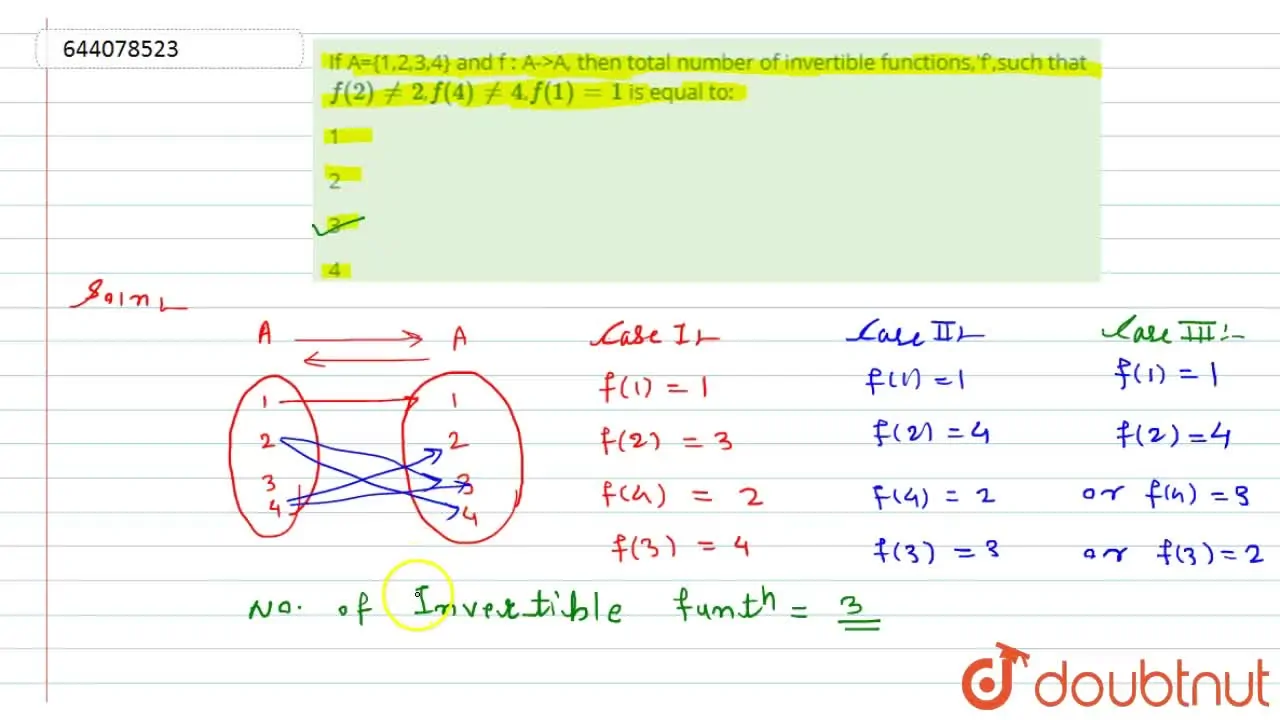 644078523
If A={1,2,3,4} and f : A->A, then total number of invertible functions,'f',such that
f(2) ≠ 2,f(4) ≠ 4,f(1) = 1 is equal to:
1
2
3
4
Soln
A A
1 1
2 2
3 3
4 4
Case I
f(1) = 1
f(2) = 3
f(4) = 2
f(3) = 4
Case II
f(1) = 1
f(2) = 4
f(4) = 2
f(3) = 3
Case III :-
f(1) = 1
f(2) = 4
or f(4) = 3
or f(3) = 2
No. of Invertible funtn = 3
doubtnut